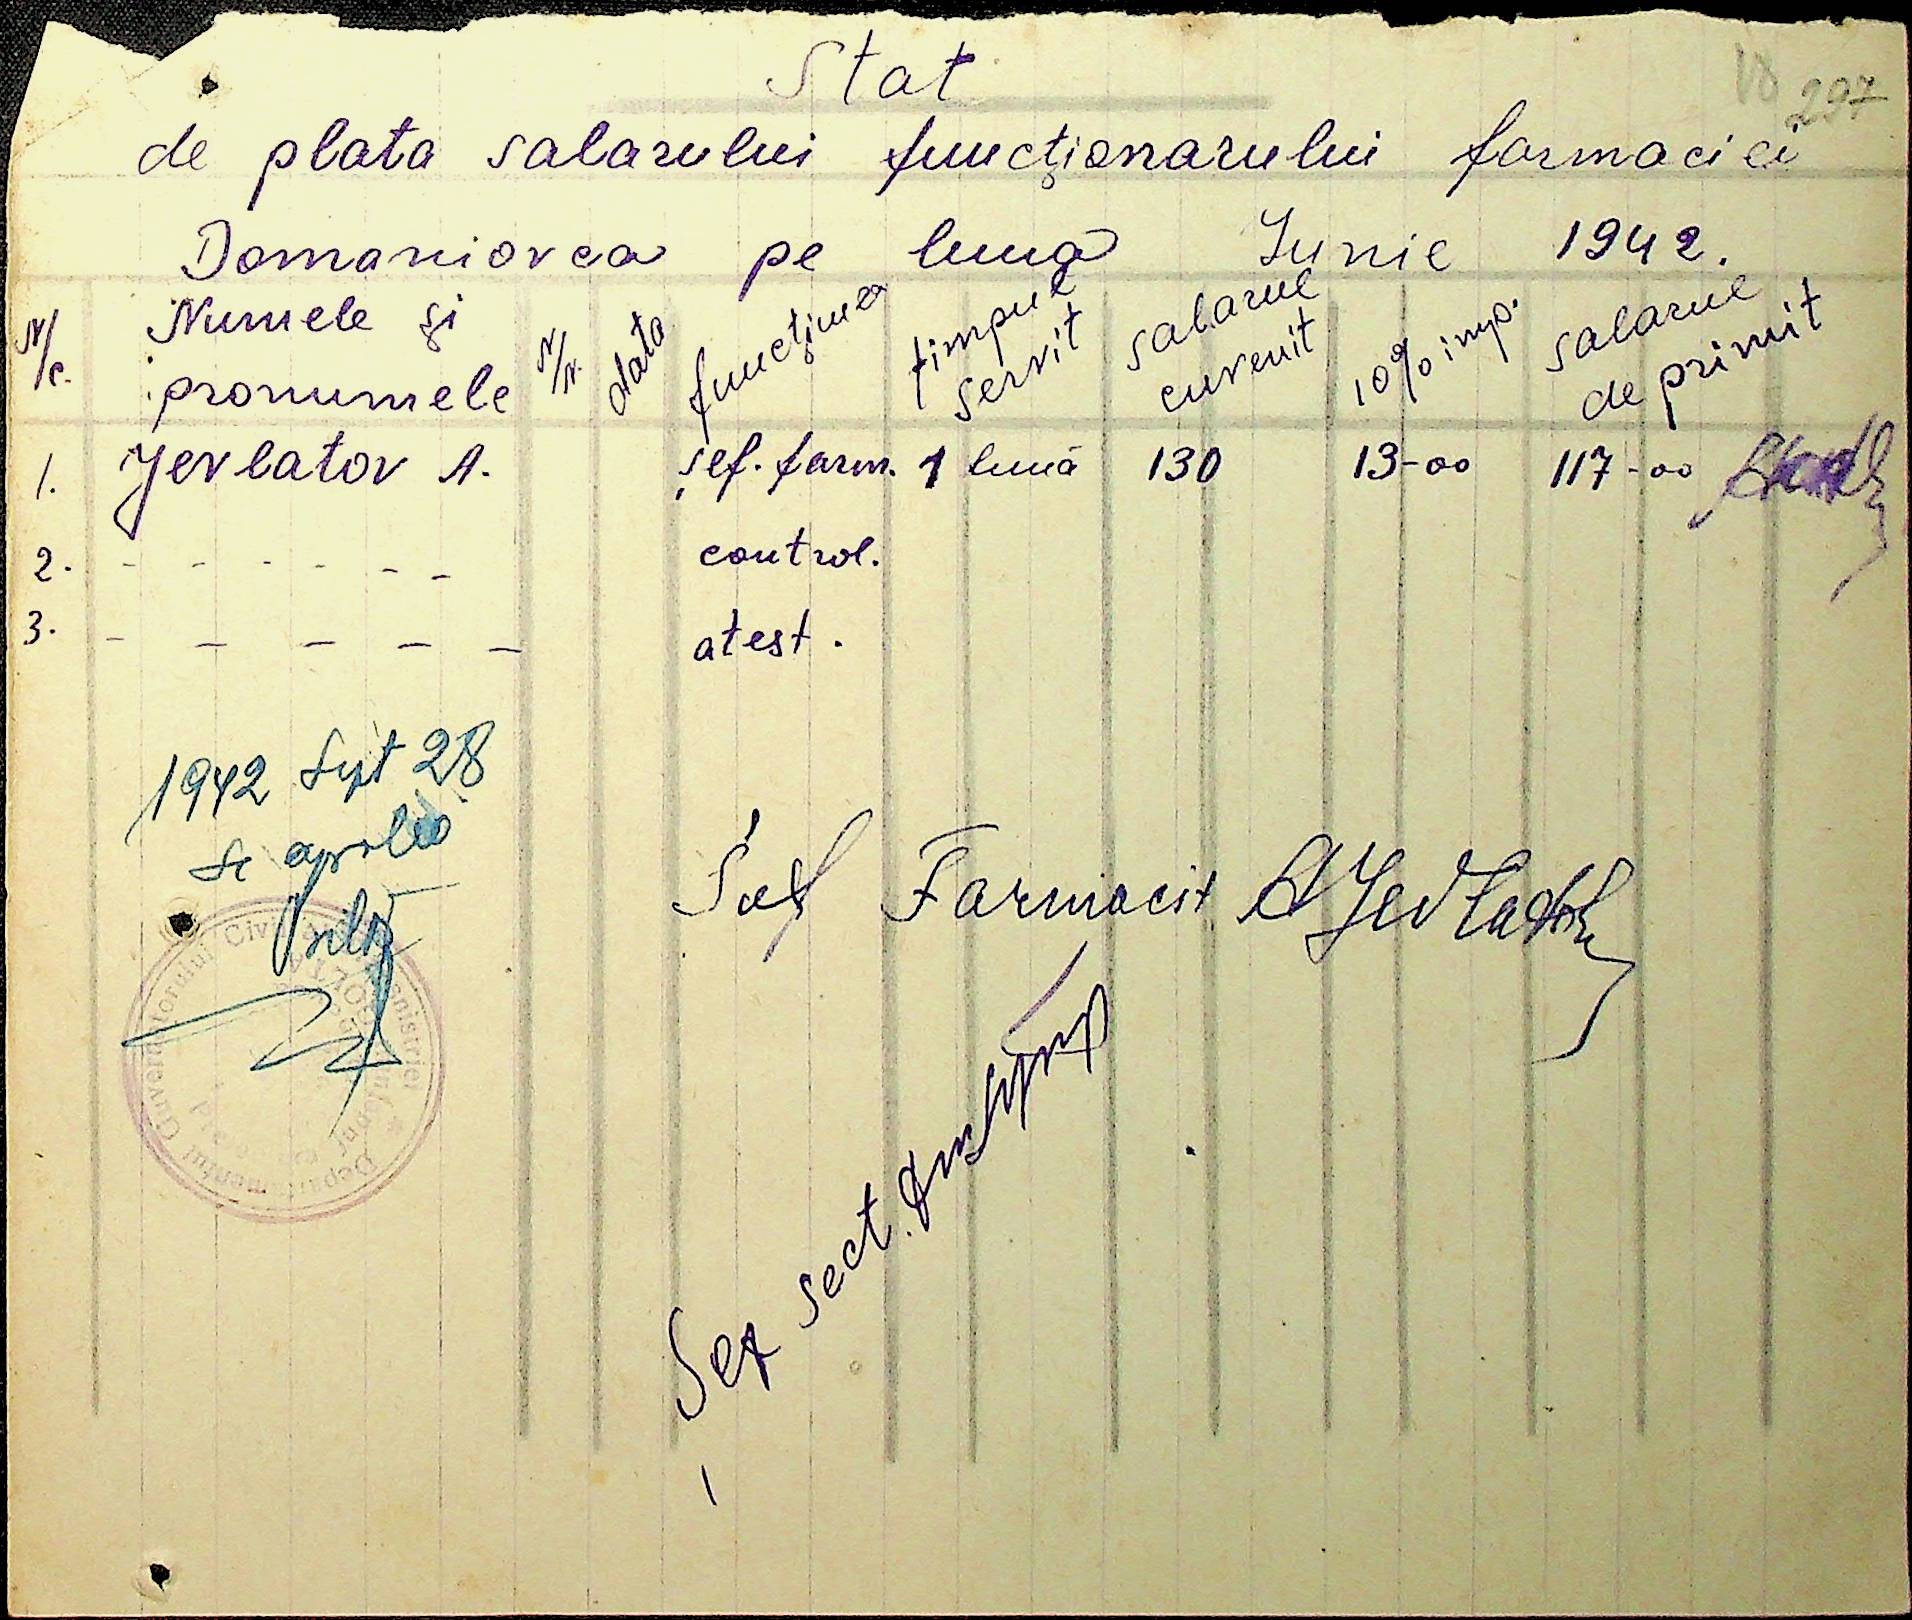 Stat
297
de plata salarului funcţionarului farmaciei
Domaniovca pe luna Iunie 1942.
N/c. Numele şi pronumele N/N. data funcţiunea timpul servit salarul cuvenit 10% imp. salarul de primit
1. Jevlatov A. şef. farm. 1 lună 130 13-00 117-00
2. - - - - - - - control.
3. - - - - - atest.
1942 Sept 28
Se aprobă
Şef Farmacist A Jevlatov
Şef sect.
Guvernatorului Civil
Departamentul